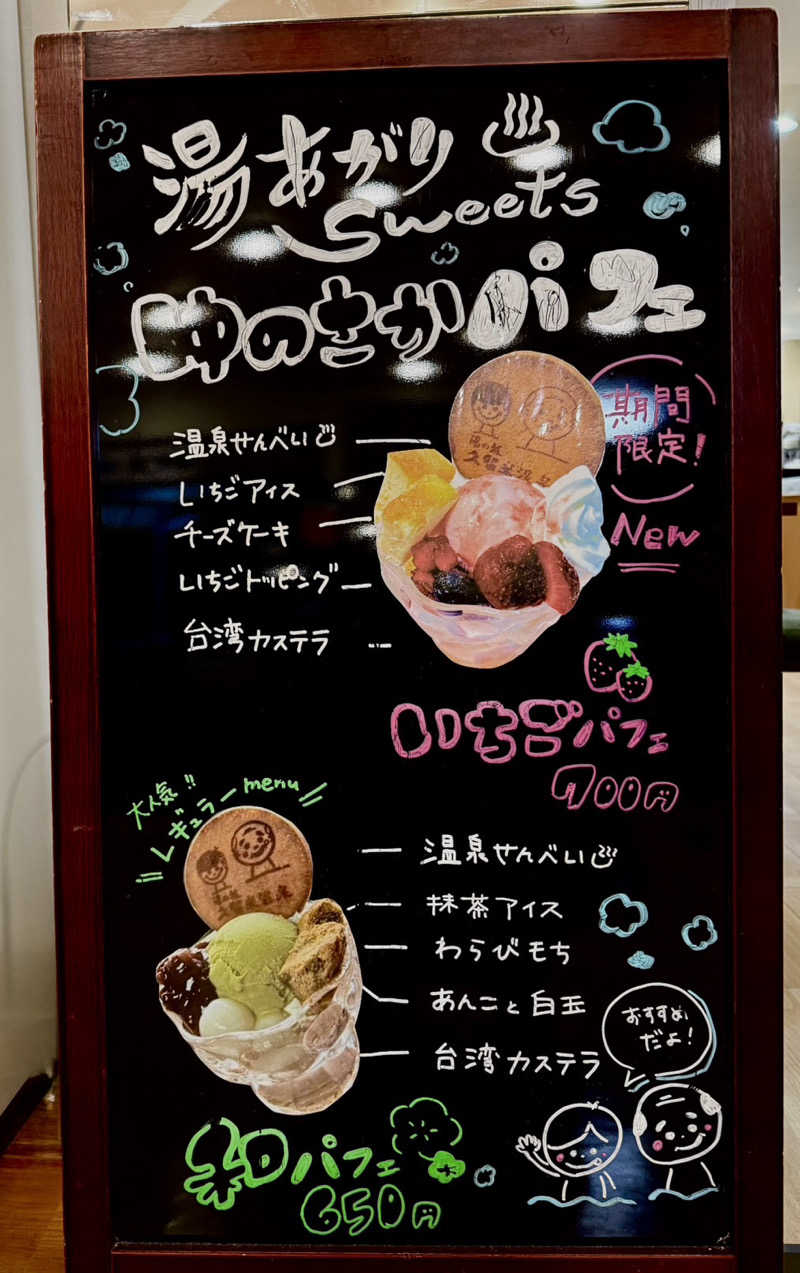 湯あがり
Sweets
ゆのさかパフェ
期間
限定!
New
温泉せんべい♨
いちごアイス
チーズケーキ
いちごトッピング
台湾カステラ
いちごパフェ
700円
大人気!!
レギュラーmenu
温泉せんべい♨
抹茶アイス
わらびもち
あんこと白玉
台湾カステラ
おすすめ
だよ!
和パフェ
650円